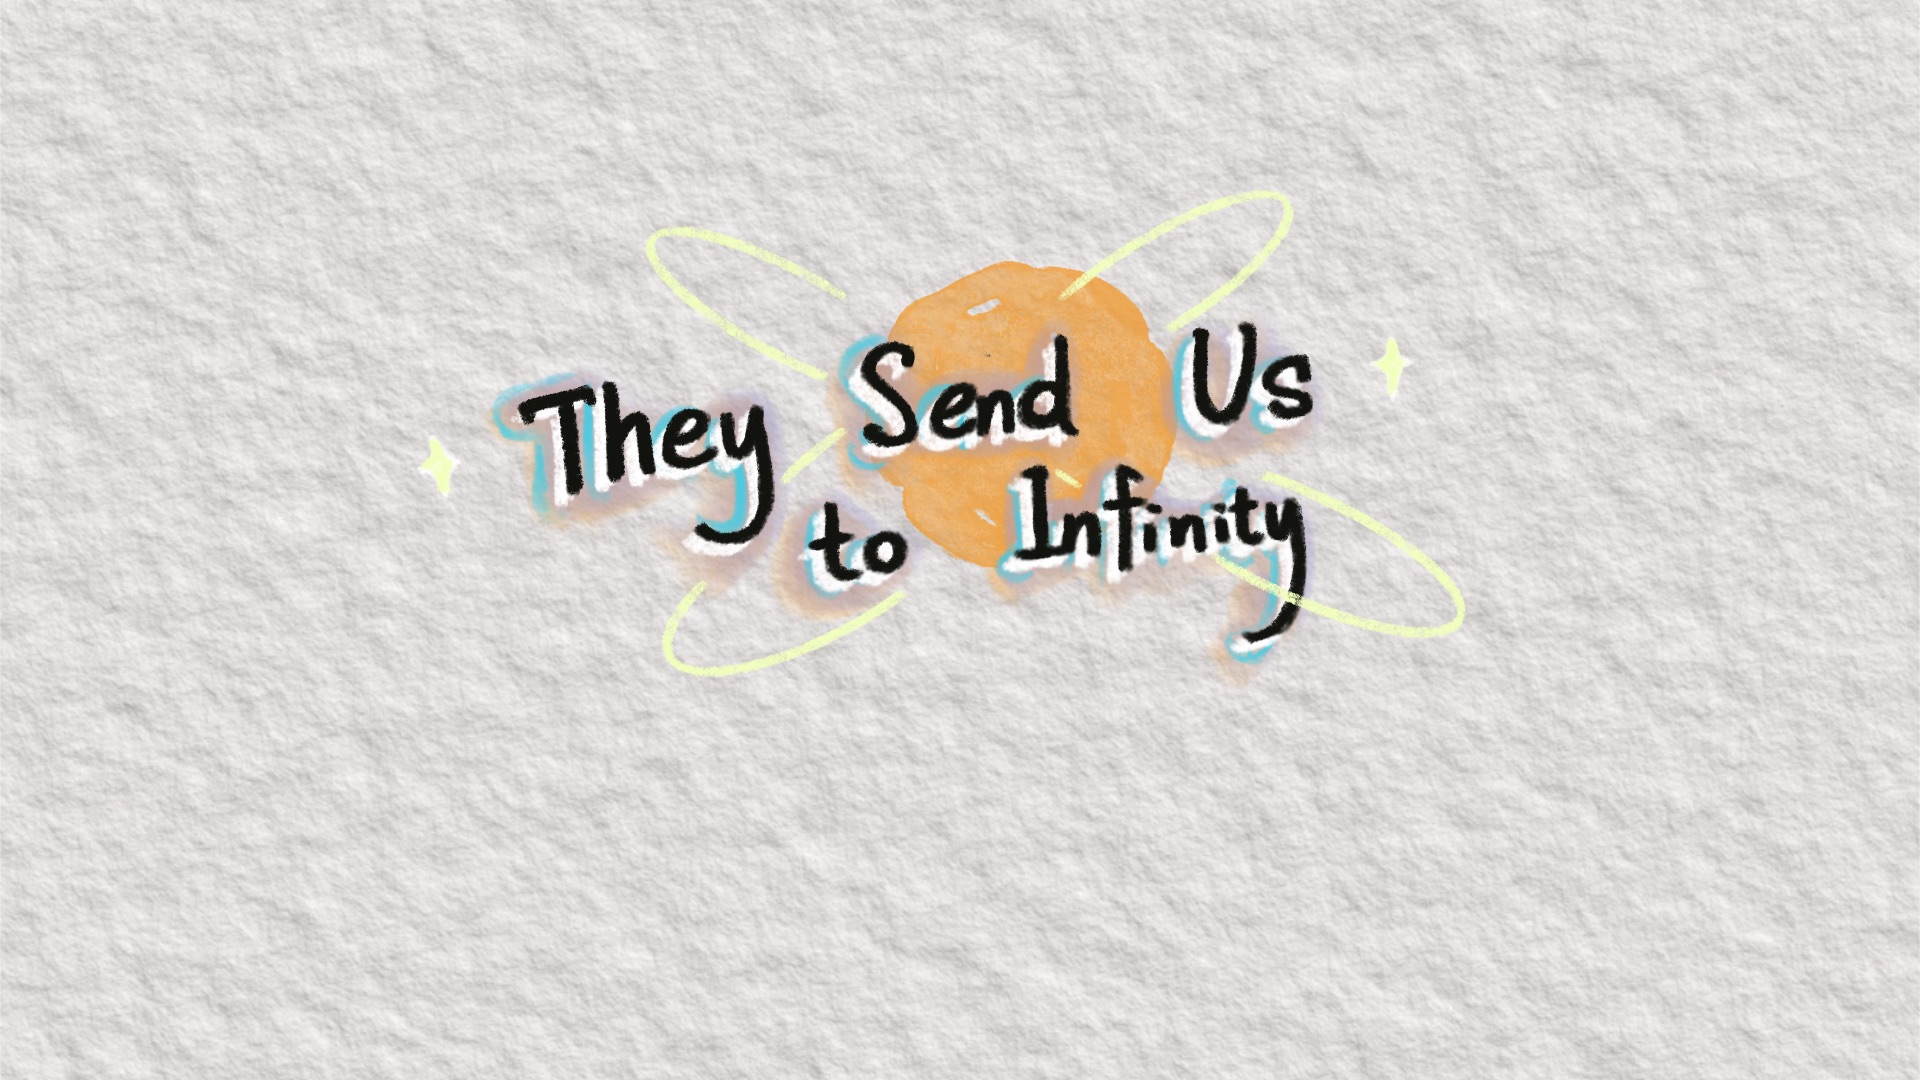 They Send Us
to Infinity